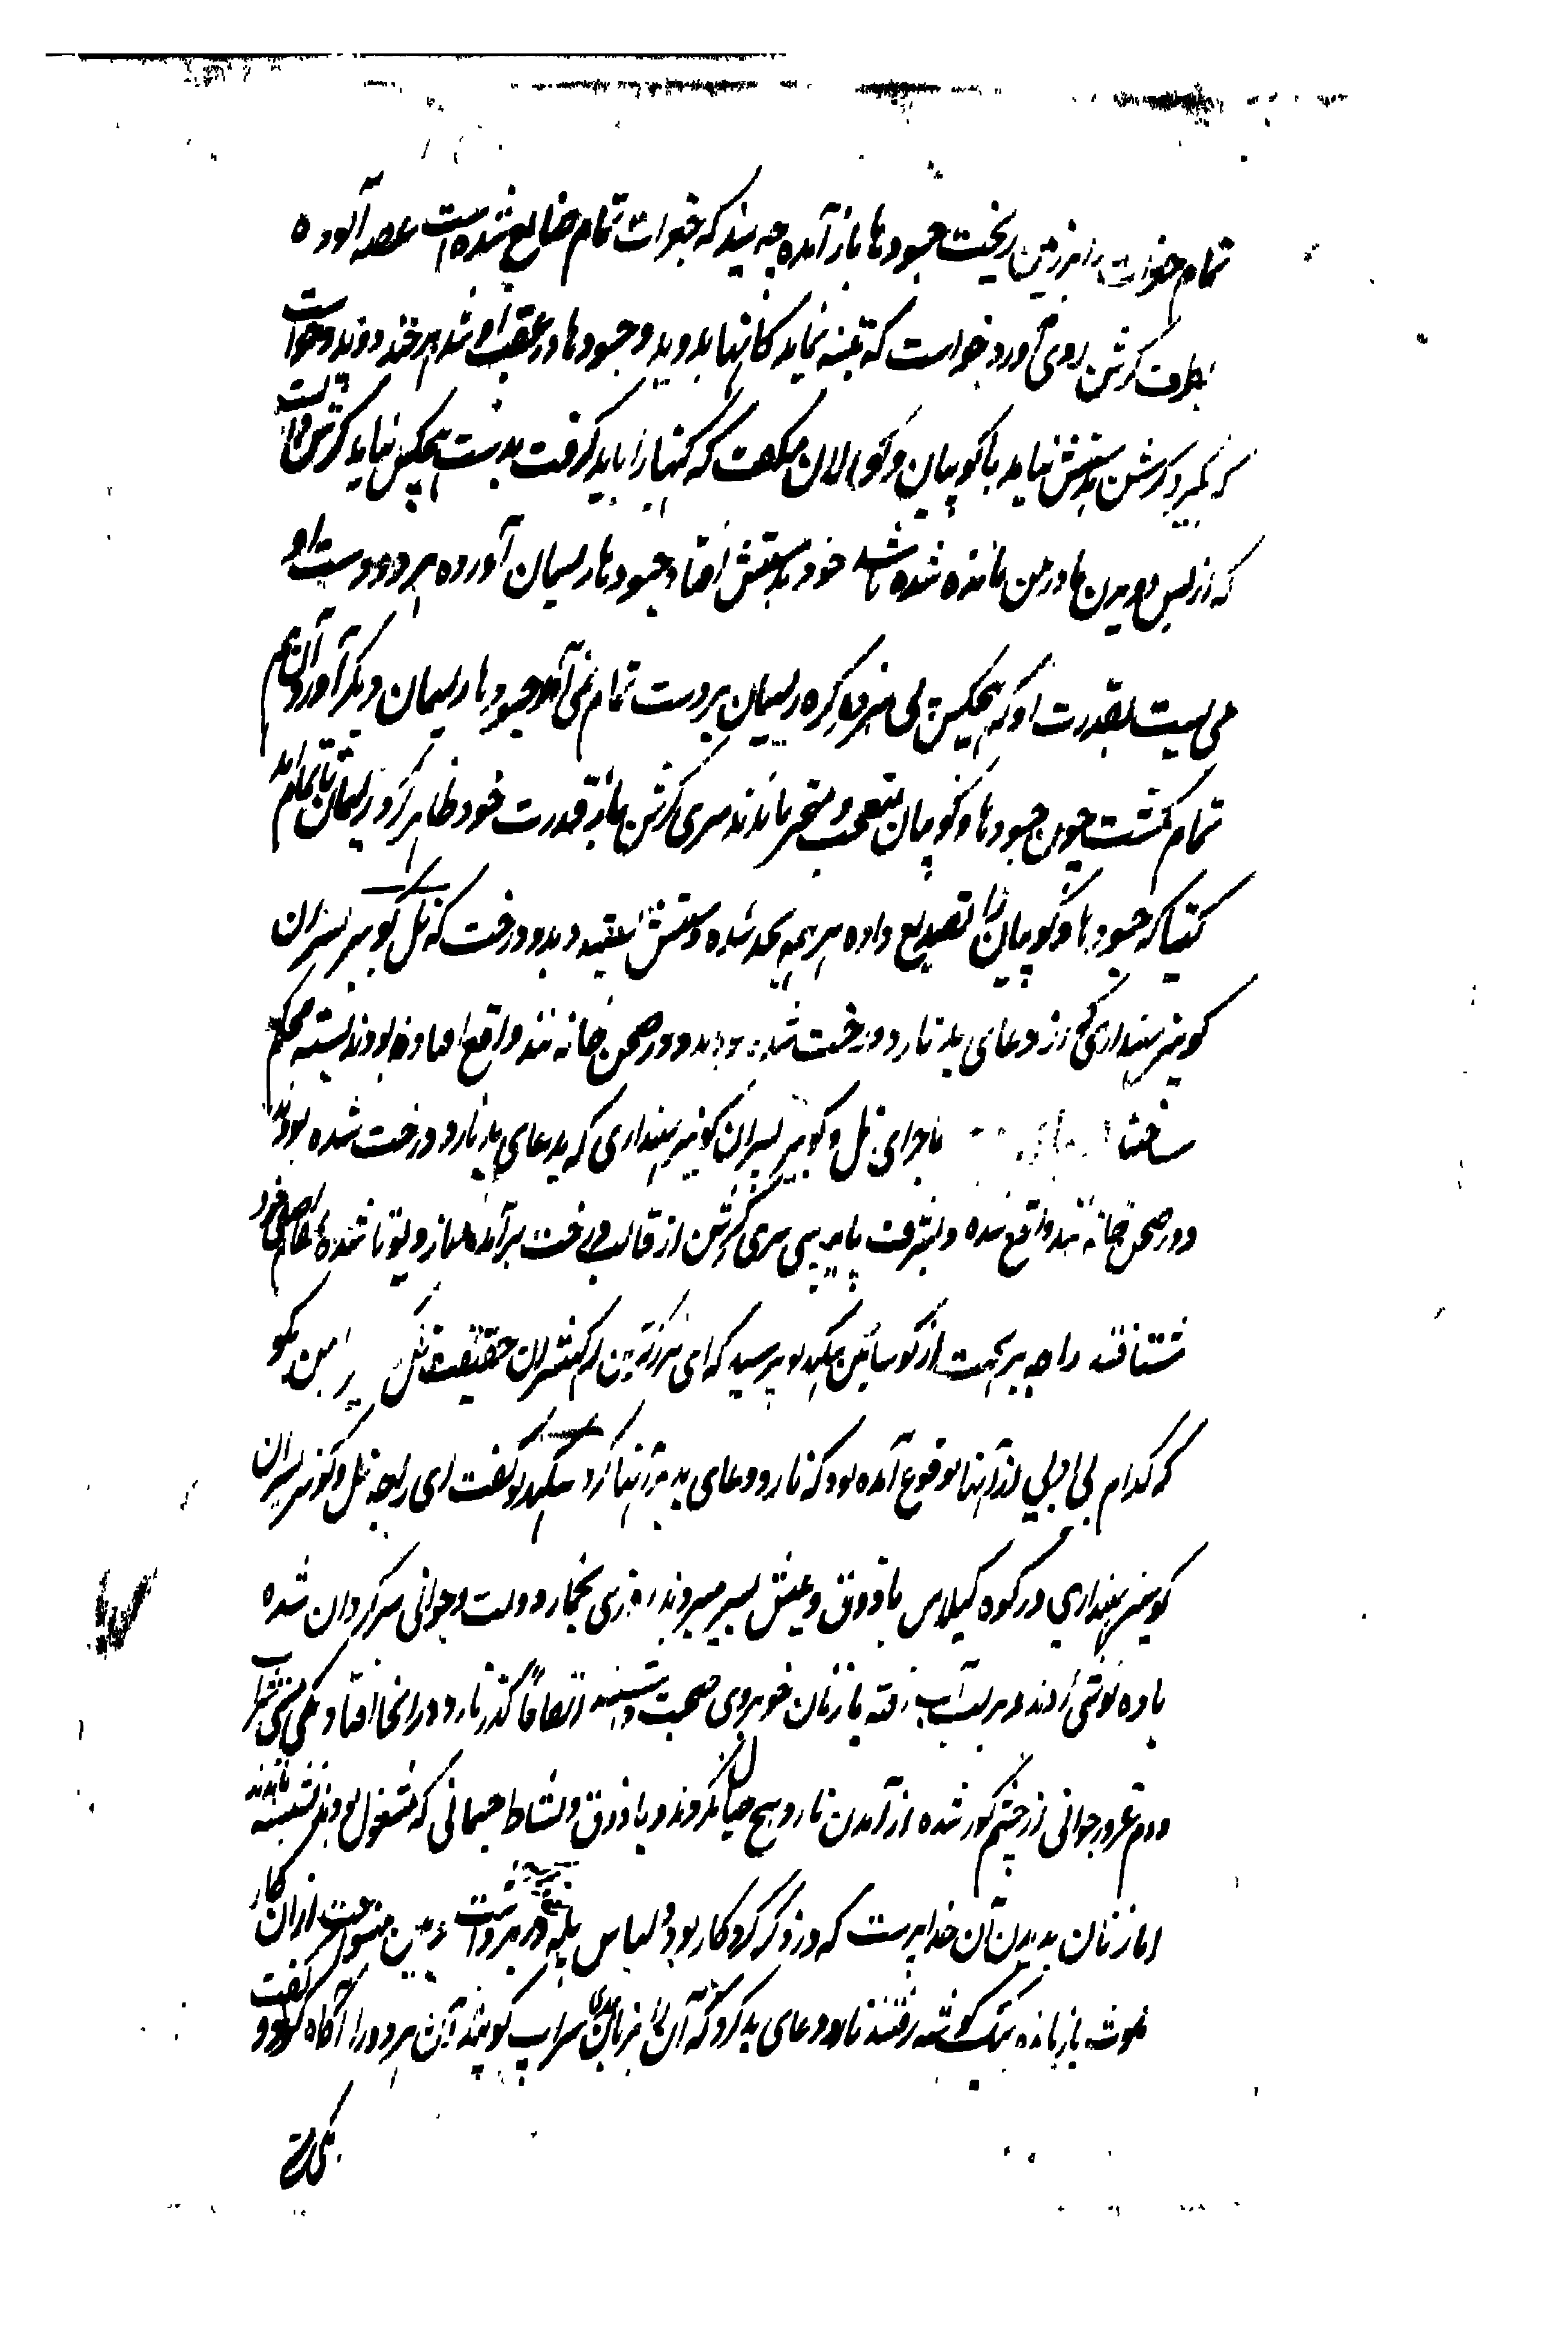 تمام جغرات را بر زمین ریخت جسودها باز آمده چه بیند که جغرات تمام ضایع شده است غصه آلوده
بطرف کرشن روی آورد خواست که تنبیه نماید کانها بدوید و جسودها در عقب او شد هر چند دوید و خواست
که بگیرد کرشن بدستش نیاید با کوپیان و کوالان میگفت که کنهیا را باید گرفت بدست هیچکس نیاید کرشن دانست
که از بس دویدن مادر من مانده شده باشد خود بدستش افتاد جسودها ریسمان آورده هر دو دست او
می بست بقدرت او که هیچکس پی نبرد گره ریسمان بر دست تمام نمی آمد جسودها ریسمان دیگر آورد آن هم
تمام نگشت چون جسودها و کوپیان متعجب و متحیر ماندند سری کرشن باز قدرت خود ظاهر کرد ریسمان تا تمام آمد
کنهیا که جسودها و کوپیان را تصدیع داده بود همه یکجد شده دستش بستند و بدو درخت که نل کوبر پسران
کوبیر بهنداری که از دعای بد نارد درخت شده بودند و در صحن خانه نند واقع افتاده بودند بسته محکم
ساختند ماجرای نل و کوبیر پسران کوبیر بهنداری که بدعای بد نارد درخت شده بودند
و در صحن خانه نند واقع شده و بشرف پابوسی سری کرشن از قالب درخت برآمده باز دیوتا شده بمقام اصلی خود
شتافتند راجه پریچهت از کوسائین سکدیو پرسید که ای بزرگترین رکهیشران حقیقت نل را بمن بگو
که کدام بی ادبی از آنها بوقوع آمده بود که نارد دعای بد بر آنها کرد سکدیو گفت ای راجه نل و کوبر پسران
کوبیر بهنداری در کوه کیلاس با ذوق و عیش بسر میبردند روزی بخمار دولت و جوانی سرگردان شده
باده نوشی کردند و بر لب آب رفته با زنان خوبروی صحبت داشتند اتفاقاً گذر نارد در انجا افتاد یکی مستی شراب
دوم غرور جوانی از چشم کور شده از آمدن نارد هیچ حیا نکردند و با ذوق و نشاط جسمانی که مشغول بودند نشسته ماندند
اما زنان بدیدن آن خداپرست که در ذکر کردکار بود و لباس در بر داشت ازان کار
باز مانده بیک گوشه رفتند نارد دعای بد کرد که آن را بزبان هندی سراپ گویند آن هر دو را آگاه کرد و گفت